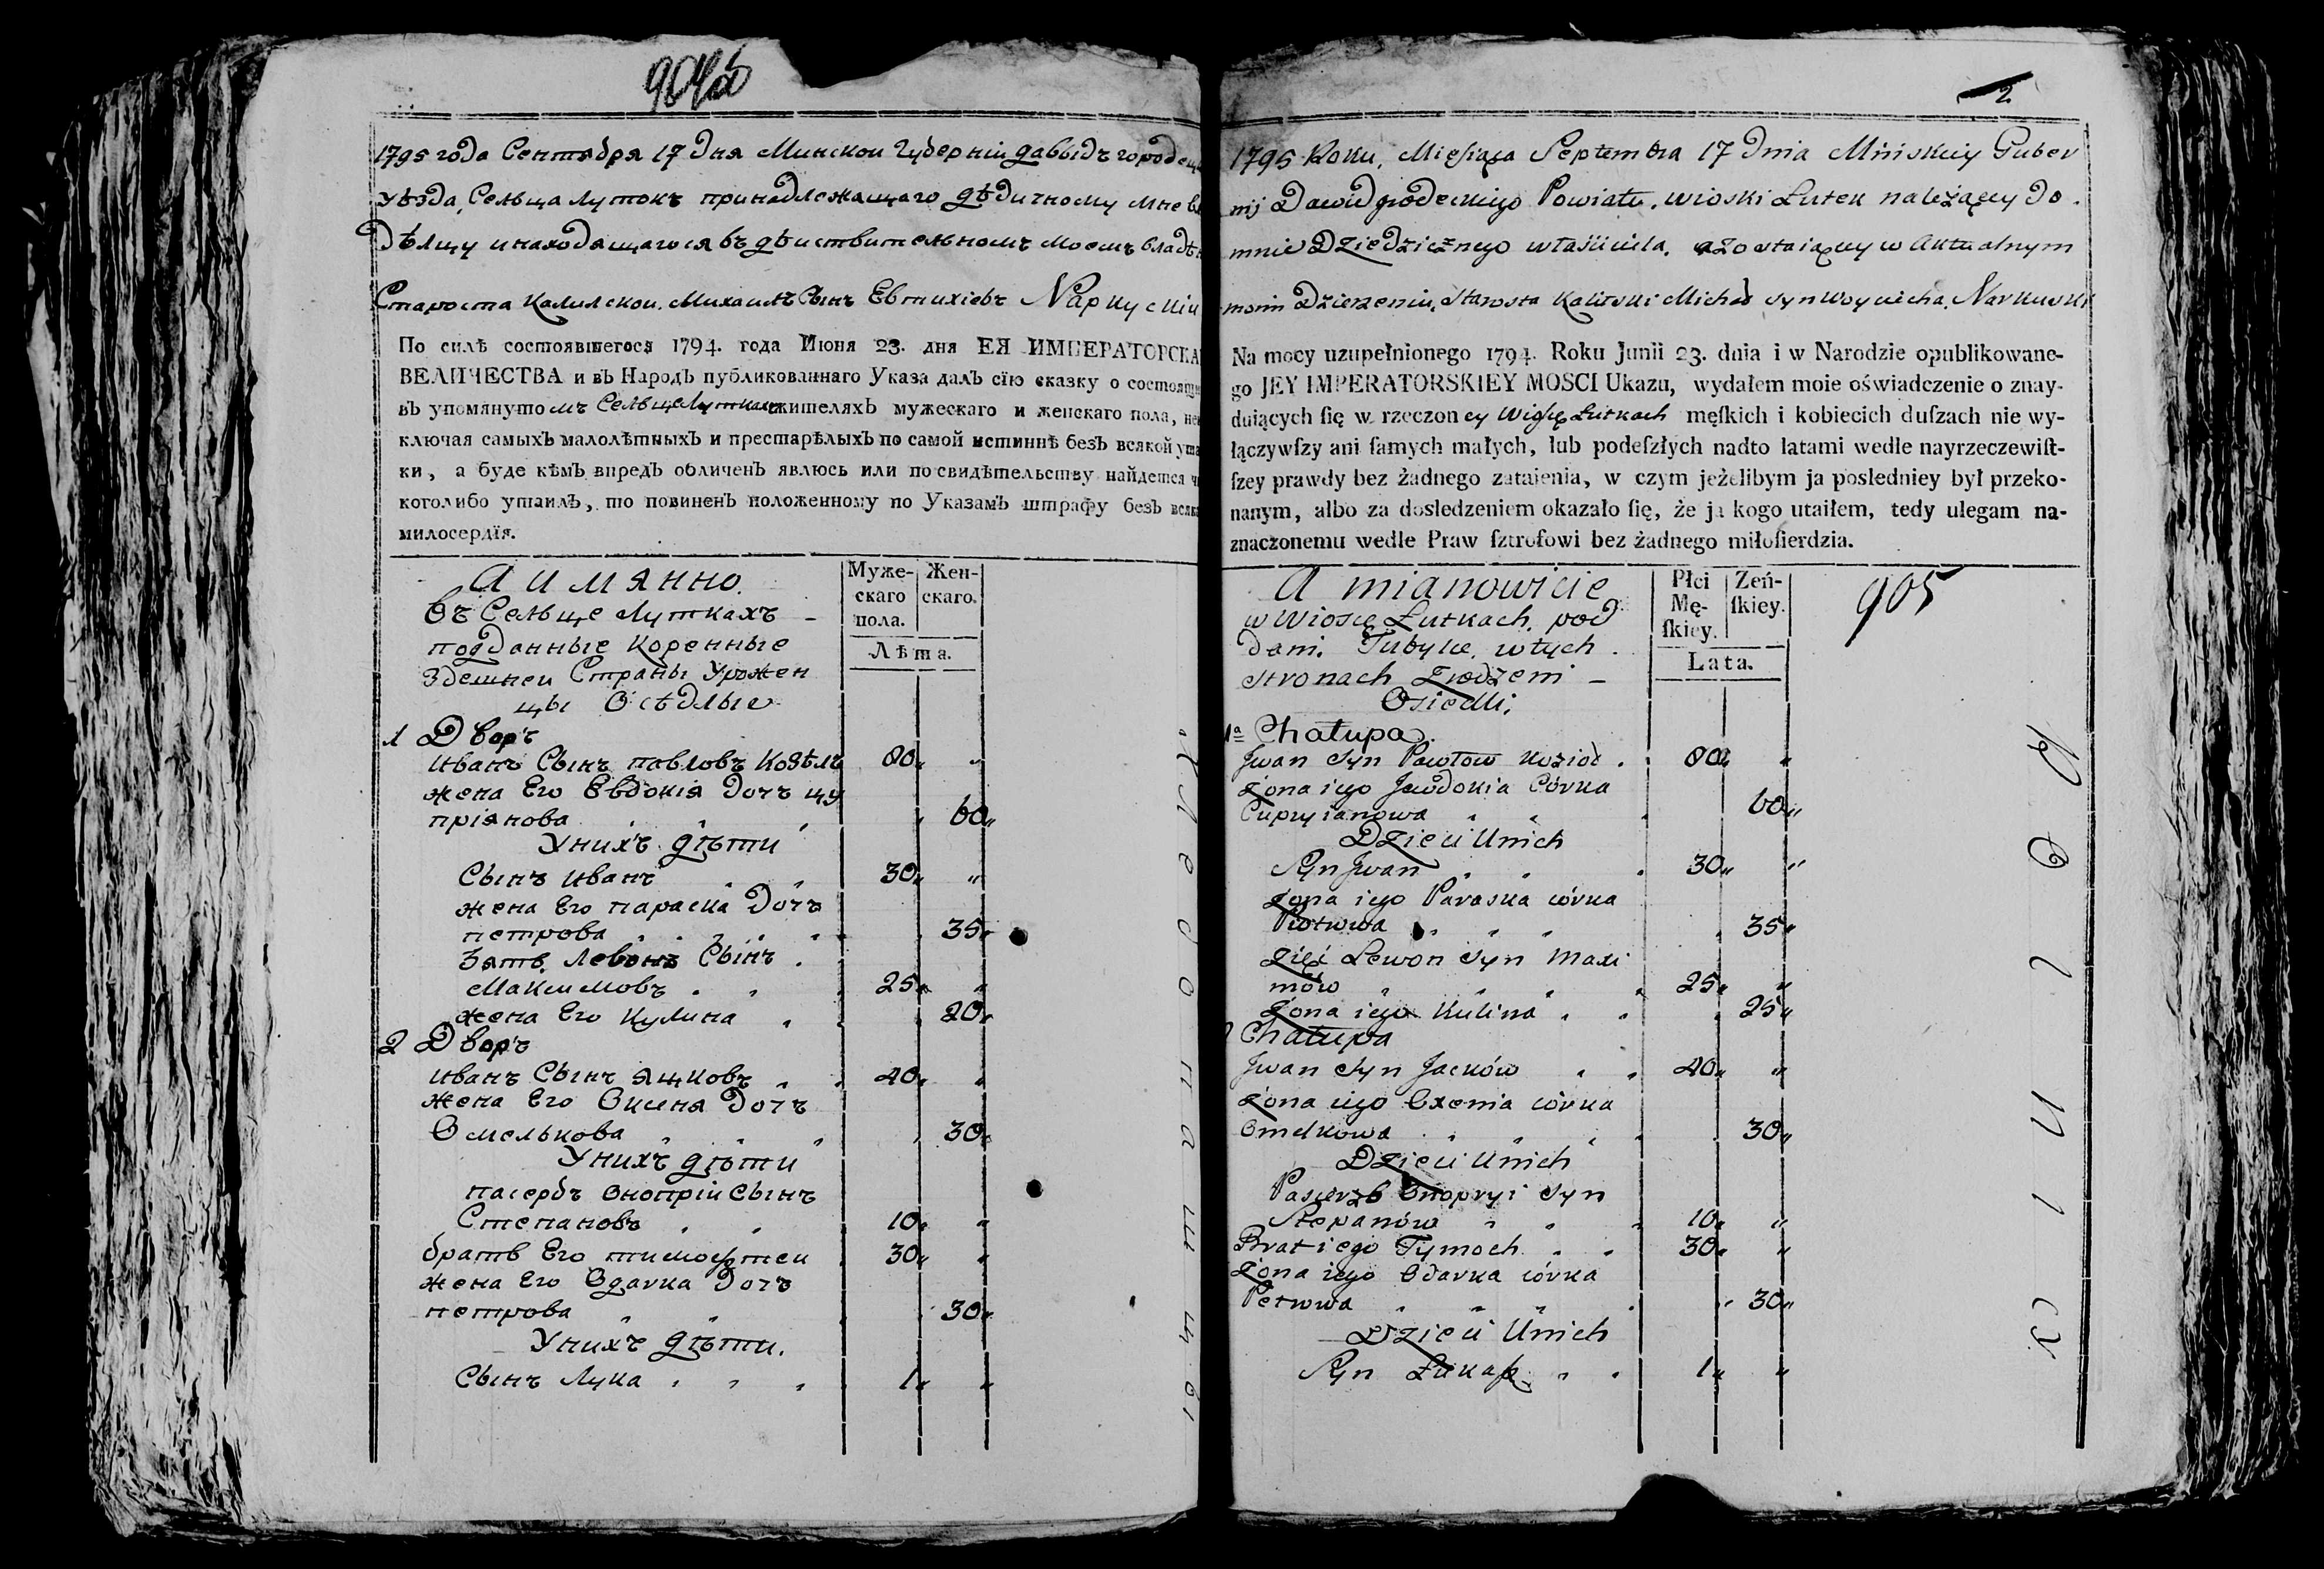 1795 года Сентября 17 дня Минской Губерніи Давыдъ городец
уѣзда, Сельца Лутокъ принадлежащаго дѣдичному мне вл
дѣлцу и находящагося въ дѣиствительномъ моемъ владѣн
Староста Калилской. Михаилъ Сынъ Евтихіевъ Наркускіи
По силѣ состоявшегося 1794. года Июня 23. дня ЕЯ ИМПЕРАТОРСКА
ВЕЛИЧЕСТВА и въ Народъ публикованнаго Указа далъ сїю сказку о состоящи
въ упомянутомъ Сельце Луткахъ жителяхъ мужескаго и женскаго пола, не
ключая самыхъ малолѣтныхъ и престарѣлыхъ по самой истиннѣ безъ всякой ута
ки, а буде кѣмъ впредь обличенъ явлюсь или по свидѣтельству найдется ч
коголибо утаилъ, то повиненъ положенному по Указамъ штрафу безъ всяка
милосердїя.
А имянно.
въ Сельце Луткахъ
подданные коренные
здешнеи Страны Урожен
цы Осѣдлые
Муже-
скаго
пола.
Жен-
скаго.
Лѣта.
1 Дворъ
Иванъ Сынъ павловъ Козѣлъ 80 "
жена Его Евдокія Дочъ цу
пріянова 60
У нихъ дѣти
Сынъ Иванъ 30 "
жена Его параска Дочъ
петрова 35
Зять Левонъ Сынъ
Максимовъ 25 "
жена Его Кулина 20
2 Дворъ
Иванъ Сынъ Яцковъ 40 "
жена Его Оксеня Дочъ
Омелькова 30
У нихъ дѣти
пасербъ Онопріи Сынъ
Степановъ 10 "
братъ Его тимофтеи 30 "
жена Его Одарка Дочъ
петрова 30
У нихъ дѣти.
Сынъ Лука 1 "
2
1795 Roku, Miesiąca Septembra 17 Dnia Mińskiey Guber
nij Dawidgrodeckiego Powiatu, wioski Lutek należącey do
mnie Dziedzicznego właściciela, a zostaiącey w Aktualnym
moim Dzierzeniu, Starosta Kaliwski Michał syn Woyciecha, Narkuski
Na mocy uzupełnionego 1794. Roku Junii 23. dnia i w Narodzie opublikowane-
go JEY IMPERATORSKIEY MOSCI Ukazu, wydałem moie oświadczenie o znay-
duiących ſię w rzeczoney Wiosce Łutkach męſkich i kobiecich duſzach nie wy-
łączywſzy ani ſamych małych, lub podeſzłych nadto latami wedle nayrzeczewiſt-
ſzey prawdy bez żadnego zataienia, w czym jeżelibym ja posledniey był przeko-
nanym, albo za dosledzeniem okazało ſię, że ja kogo utaiłem, tedy ulegam na-
znaczonemu wedle Praw ſztrofowi bez żadnego miłoſierdzia.
A mianowicie
w Wiosce Łutkach, pod
dani Tubylce, w tych
stronach Zrodzeni
Osiedli;
Płci
Mę-
ſkiey.
Zeń-
ſkiey.
Lata.
905
1a Chałupa
Jwan Syn Pawłow Kozioł 80 "
Żona iego Jewdokia Córka
Cupryianowa 60
Dzieci U nich
Syn Jwan 30 "
Żona iego Paraska córka
Piotrowa 35
Zięć Lewon Syn Maxi
mów 25 "
Żona iego Kulina 25
Chałupa
Jwan Syn Jacków 40 "
Żona iego Oxenia córka
Omelkowa 30
Dzieci U nich
Pasierzb Onopryi Syn
Stepanów 10 "
Brat iego Tymoch 30 "
Żona iego Odarka córka
Petrowa 30
Dzieci U nich
Syn Łukasz 1 "